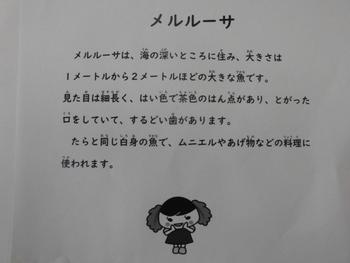 メルルーサ
メルルーサは、海の深いところに住み、大きさは
1メートルから2メートルほどの大きな魚です。
見た目は細長く、はい色で茶色のはん点があり、とがった
口をしていて、するどい歯があります。
たらと同じ白身の魚で、ムニエルやあげ物などの料理に
使われます。